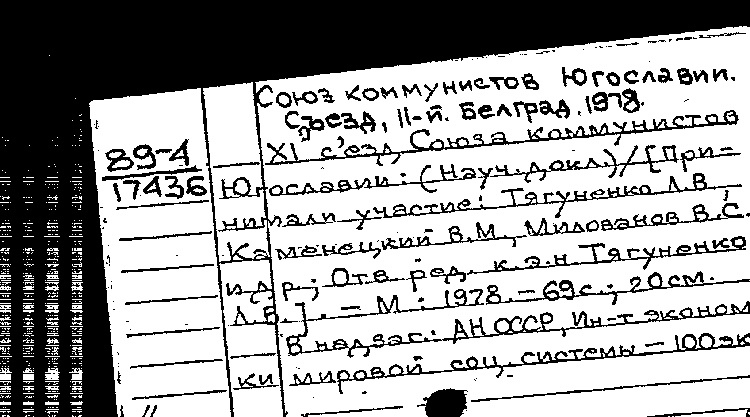 Союз коммунистов Югославии.
Съезд, II-й. Белград. 1978.
89-4
17436
XI с'езд Союза коммунистов
Югославии: (Науч. докл.) / [При-
нимали участие: Тягуненко Л.В.
Каменецкий В.М., Милованов В.С.
и др.; Отв. ред. к.э.н. Тягуненко
Л.В.]. — М.: 1978. — 69с.; 20см.
В надзаг.: АН СССР, Ин-т эконом
ки мировой соц. системы — 100 эк